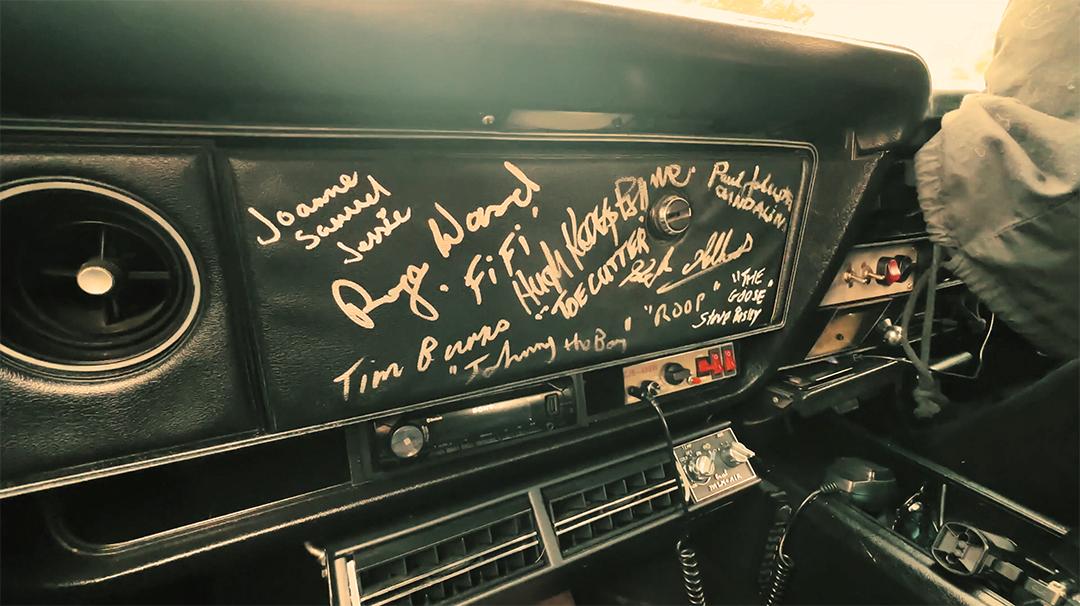 Joanne
Samuel
Jessie
Roger Ward
. FiFi.
HUGH KEAYS BYRNE.
"TOECUTTER"
Paul Johnstone
CUNDALINI
Tim Burns
"Johnny the Boy"
"ROOP"
"THE
GOOSE"
Steve Bisley